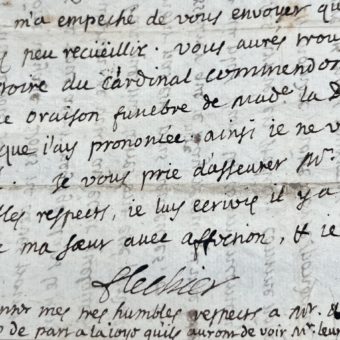 m'a empeché de vous envoyer qu
peu recueillir. vous aurés trou
toire du cardinal commendon
e oraison funebre de Made la D
que j'ay prononcée. ainsi ie ne v
Ie vous prie d'asseurer Mr.
les respects, ie luy ecrivis il y a
e ma sœur avec affection, & ie
flechier
mes tres humbles respects a Mr. &
de part a la ioye qu'ils auront de voir Mr. leur